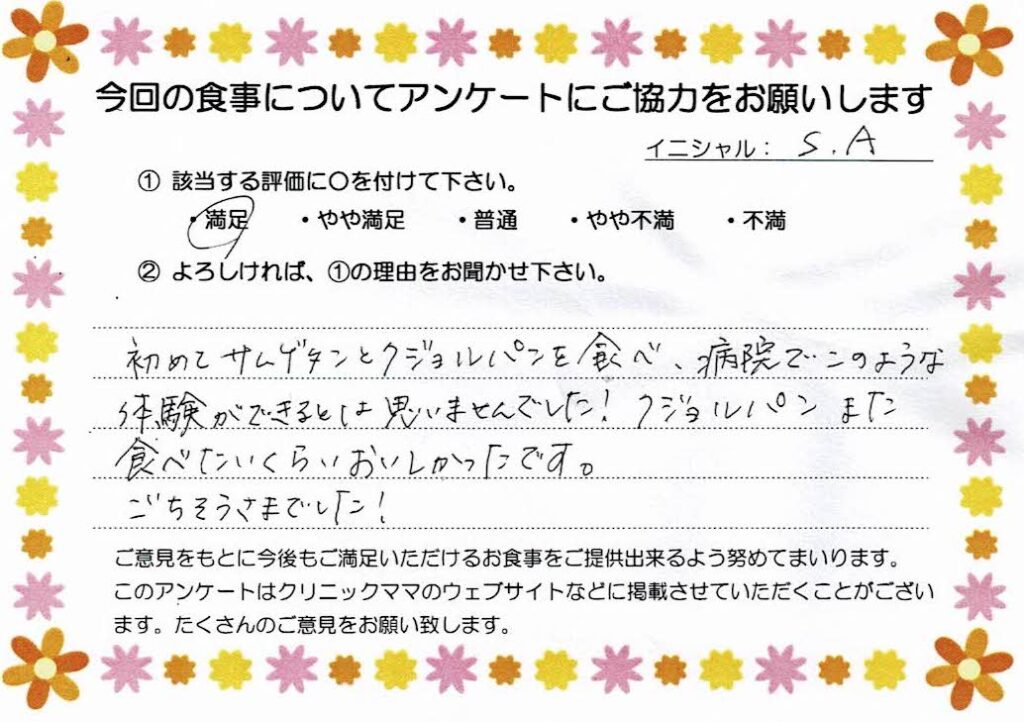 今回の食事についてアンケートにご協力をお願いします
イニシャル： S.A
① 該当する評価に〇を付けて下さい。
・満足 ・やや満足 ・普通 ・やや不満 ・不満
② よろしければ、①の理由をお聞かせ下さい。
初めてサムゲタンとクジョルパンを食べ、病院でこのような
体験ができるとは思いませんでした！クジョルパン また
食べたいくらいおいしかったです。
ごちそうさまでした！
ご意見をもとに今後もご満足いただけるお食事をご提供出来るよう努めてまいります。
このアンケートはクリニックママのウェブサイトなどに掲載させていただくことがござい
ます。たくさんのご意見をお願い致します。